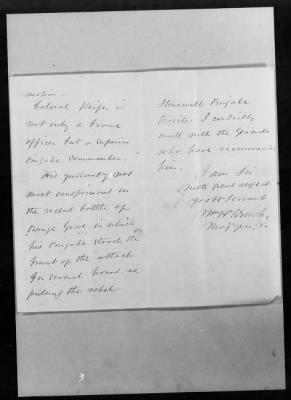 motion.
Colonel Keifer is
not only a brave
officer but a superior
Brigade Commander.
His gallantry was
most conspicuous in
the recent battle of
Orange Grove, in which
his Brigade stood the
brunt of the attack
for several hours re
pulsing the rebel
Stonewall Brigade
twice. I cordially
unite with the Generals
who have recommended
him.
I am Sir
with great respect
Yr obt Servant
Wm H
Maj Gen. V.